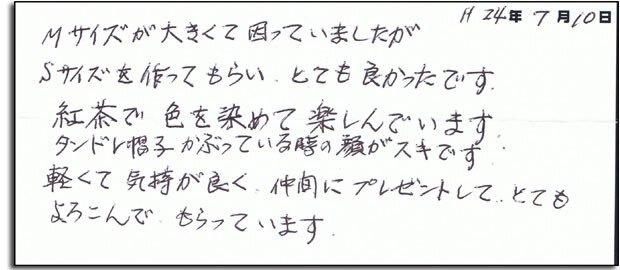 H 24年 7月10日
Mサイズが大きくて困っていましたが
Sサイズを作ってもらい、とても良かったです。
紅茶で色を染めて楽しんでいます。
タンドレ帽子かぶっている時の顔がスキです。
軽くて気持が良く、仲間にプレゼントして、とても
よろこんでもらっています。